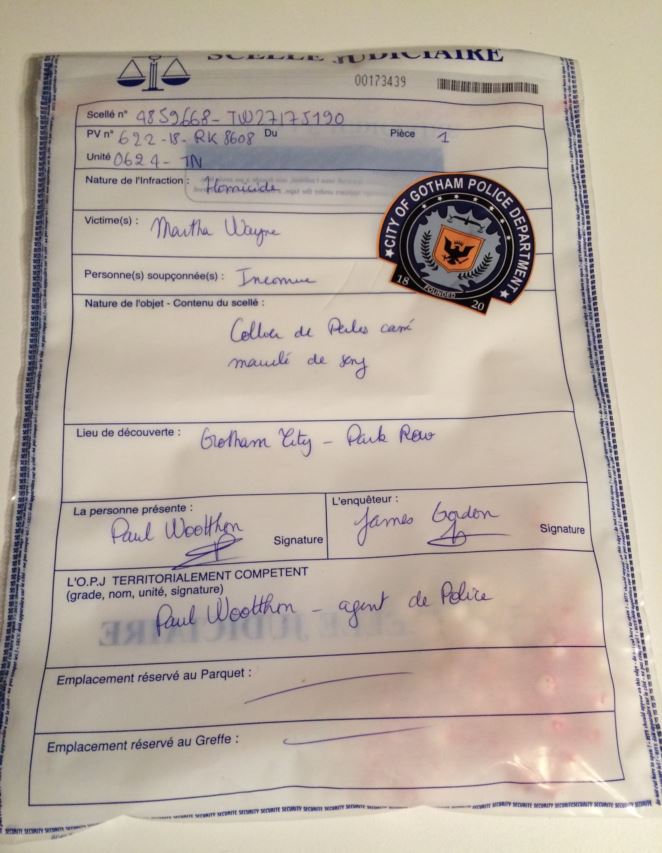 SCELLE JUDICIAIRE
00173439
Scellé n° 4859668-TW27175190
PV n° 622-18-RK8608 Du Pièce 1
Unité 0624-TN
Nature de l'Infraction : Homicide
Victime(s) : Martha Wayne
CITY OF GOTHAM POLICE DEPARTMENT
18 FOUNDED 20
Personne(s) soupçonnée(s) : Inconnue
Nature de l'objet - Contenu du scellé :
Collier de Perles
de
Lieu de découverte : Gotham City - Park Row
La personne présente :
Paul Wootthon
Signature
L'enquêteur :
James Gordon
Signature
L'O.P.J TERRITORIALEMENT COMPETENT
(grade, nom, unité, signature)
Paul Wootthon - agent de Police
Emplacement réservé au Parquet :
Emplacement réservé au Greffe :
SECURITE SECURITY SECURITE SECURITY